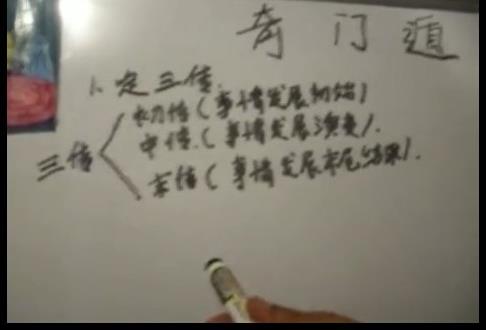 奇门遁
1、定三传.
初传(事情发展初始)
中传.(事情发展演变).
三传
末传(事情发展末尾结果).